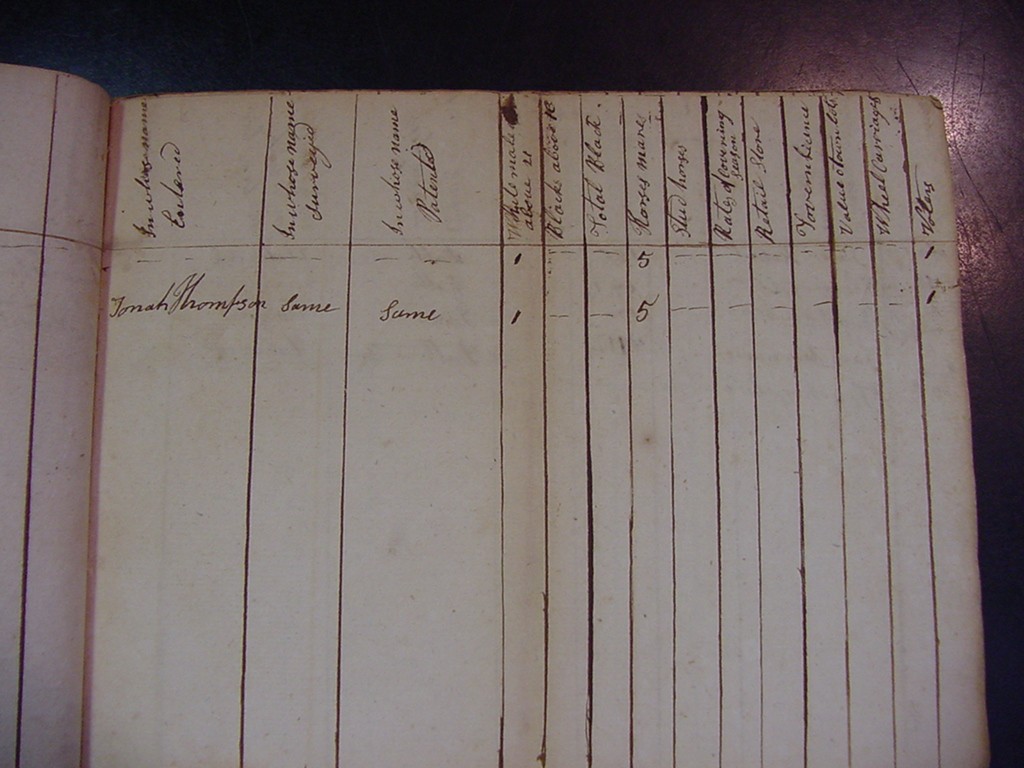 In whose name Entered
In whose name Surveyed
In whose name Patented
White males above 21
Blacks above 16
Total Black.
Horses mares
Stud horses
Rates of covering season
Retail Store
Tavern license
Value town lots
Wheel Carriages
Voters
— — — — — — 1 — — 5 — — — — — — 1
Jonah Thompson Same Same 1 — — 5 — — — — — — 1